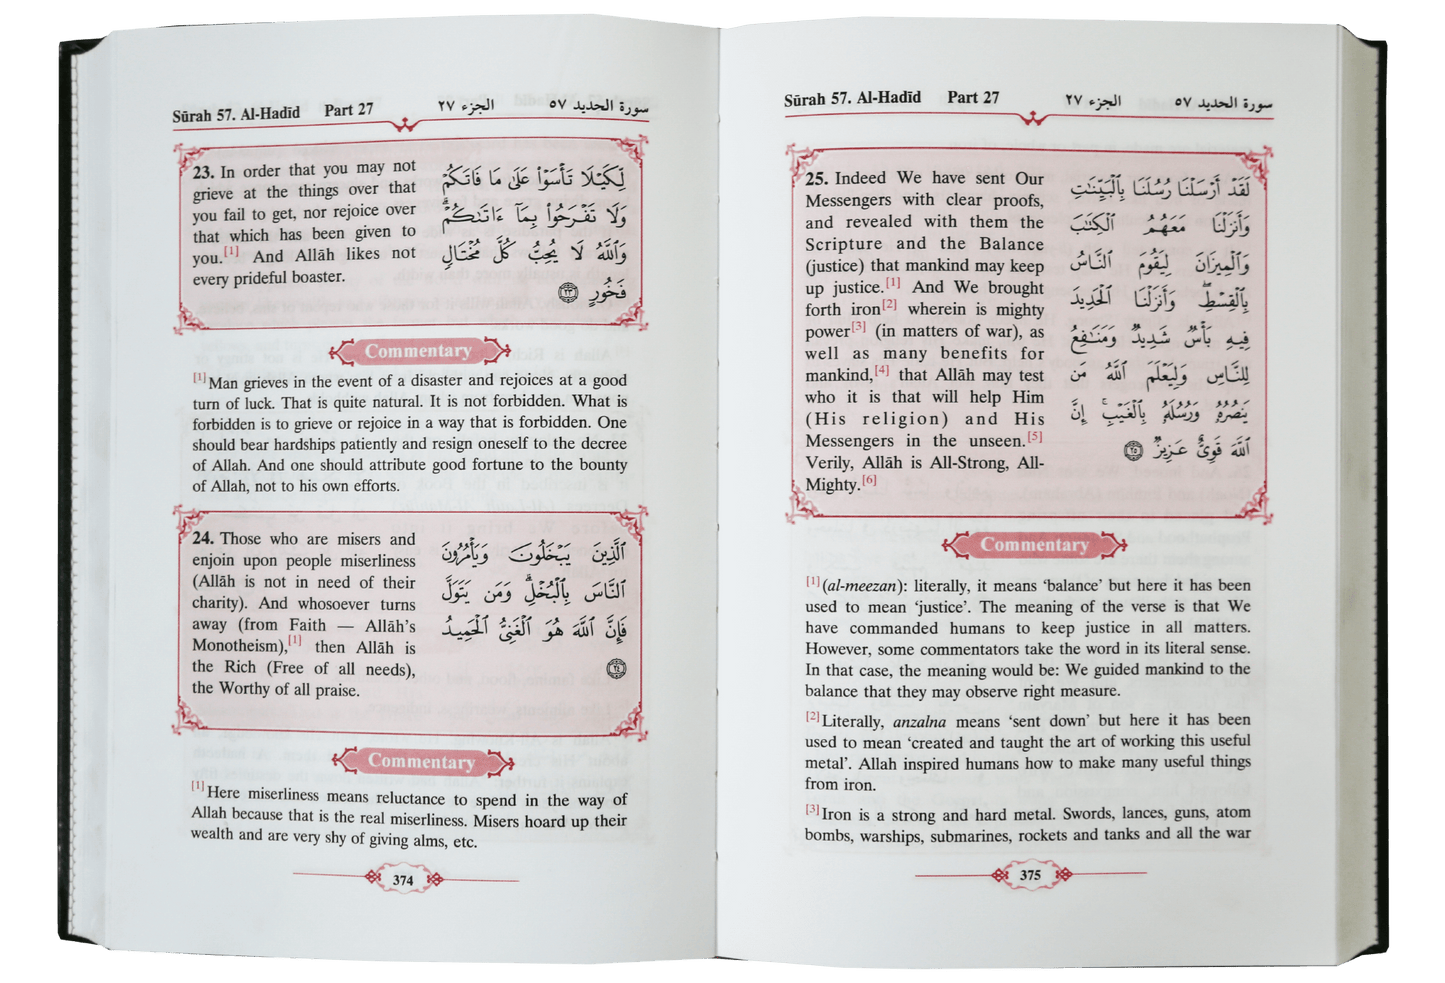 Sūrah 57. Al-Hadīd Part 27 الجزء ٢٧ سورة الحديد ٥٧
23. In order that you may not
grieve at the things over that
you fail to get, nor rejoice over
that which has been given to
you.[1] And Allāh likes not
every prideful boaster.
لِّكَيْلَا تَأْسَوْا۟ عَلَىٰ مَا فَاتَكُمْ
وَلَا تَفْرَحُوا۟ بِمَآ ءَاتَىٰكُمْ ۗ
وَٱللَّهُ لَا يُحِبُّ كُلَّ مُخْتَالٍ
فَخُورٍ ٢٣
Commentary
[1] Man grieves in the event of a disaster and rejoices at a good
turn of luck. That is quite natural. It is not forbidden. What is
forbidden is to grieve or rejoice in a way that is forbidden. One
should bear hardships patiently and resign oneself to the decree
of Allah. And one should attribute good fortune to the bounty
of Allah, not to his own efforts.
24. Those who are misers and
enjoin upon people miserliness
(Allāh is not in need of their
charity). And whosoever turns
away (from Faith — Allāh's
Monotheism),[1] then Allāh is
the Rich (Free of all needs),
the Worthy of all praise.
ٱلَّذِينَ يَبْخَلُونَ وَيَأْمُرُونَ
ٱلنَّاسَ بِٱلْبُخْلِ ۗ وَمَن يَتَوَلَّ
فَإِنَّ ٱللَّهَ هُوَ ٱلْغَنِىُّ ٱلْحَمِيدُ
٢٤
Commentary
[1] Here miserliness means reluctance to spend in the way of
Allah because that is the real miserliness. Misers hoard up their
wealth and are very shy of giving alms, etc.
374
Sūrah 57. Al-Hadīd Part 27 الجزء ٢٧ سورة الحديد ٥٧
25. Indeed We have sent Our
Messengers with clear proofs,
and revealed with them the
Scripture and the Balance
(justice) that mankind may keep
up justice.[1] And We brought
forth iron[2] wherein is mighty
power[3] (in matters of war), as
well as many benefits for
mankind,[4] that Allāh may test
who it is that will help Him
(His religion) and His
Messengers in the unseen.[5]
Verily, Allāh is All-Strong, All-
Mighty.[6]
لَقَدْ أَرْسَلْنَا رُسُلَنَا بِٱلْبَيِّنَٰتِ
وَأَنزَلْنَا مَعَهُمُ ٱلْكِتَٰبَ
وَٱلْمِيزَانَ لِيَقُومَ ٱلنَّاسُ
بِٱلْقِسْطِ ۖ وَأَنزَلْنَا ٱلْحَدِيدَ
فِيهِ بَأْسٌ شَدِيدٌ وَمَنَٰفِعُ
لِلنَّاسِ وَلِيَعْلَمَ ٱللَّهُ مَن
يَنصُرُهُۥ وَرُسُلَهُۥ بِٱلْغَيْبِ ۚ إِنَّ
ٱللَّهَ قَوِىٌّ عَزِيزٌ ٢٥
Commentary
[1] (al-meezan): literally, it means 'balance' but here it has been
used to mean 'justice'. The meaning of the verse is that We
have commanded humans to keep justice in all matters.
However, some commentators take the word in its literal sense.
In that case, the meaning would be: We guided mankind to the
balance that they may observe right measure.
[2] Literally, anzalna means 'sent down' but here it has been
used to mean 'created and taught the art of working this useful
metal'. Allah inspired humans how to make many useful things
from iron.
[3] Iron is a strong and hard metal. Swords, lances, guns, atom
bombs, warships, submarines, rockets and tanks and all the war
375